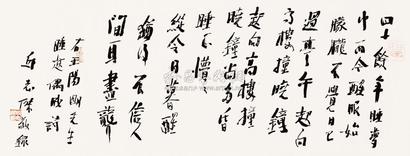 四十餘年睡夢
中而今醒眼始
朦朧不知日已
過亭午起向
高樓撞曉鐘
起向高樓撞
曉鐘尚多昏
睡正懵懵
縱令日暮醒
猶得不信人
間耳盡聾
右王陽明先生
睡起偶成詩